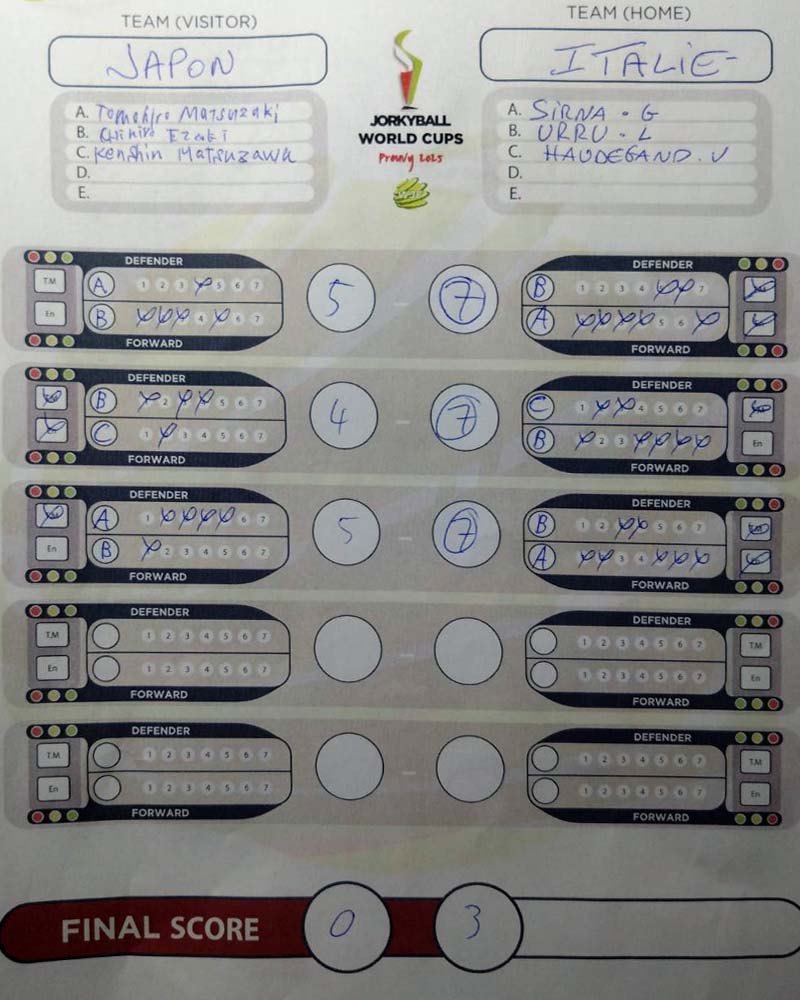 TEAM (VISITOR)
TEAM (HOME)
JAPON
ITALIE
A. Tomohiro Matsuzaki
B. Chihiro Ezaki
C. Kenshin Matsuzawa
D.
E.
JORKYBALL
WORLD CUPS
2025
A. SIRNA . G
B. URRU . L
C. HAUDEGAND . V
D.
E.
DEFENDER
T.M A 1 2 3 5 6 7
En B 4 6 7
FORWARD
5 - 7
DEFENDER
B 1 2 3 4 7
A 5 6
FORWARD
DEFENDER
B 2 5 6 7
C 1 3 4 5 6 7
FORWARD
4 - 7
DEFENDER
C 1 4 5 6 7
B 2 3 En
FORWARD
DEFENDER
A 1 6 7
En B 2 3 4 5 6 7
FORWARD
5 - 7
DEFENDER
B 1 2 5 6 7
A 3 4
FORWARD
DEFENDER
T.M 1 2 3 4 5 6 7
En 1 2 3 4 5 6 7
FORWARD
DEFENDER
1 2 3 4 5 6 7 T.M
1 2 3 4 5 6 7 En
FORWARD
DEFENDER
T.M 1 2 3 4 5 6 7
En 1 2 3 4 5 6 7
FORWARD
DEFENDER
1 2 3 4 5 6 7 T.M
1 2 3 4 5 6 7 En
FORWARD
FINAL SCORE 0 3